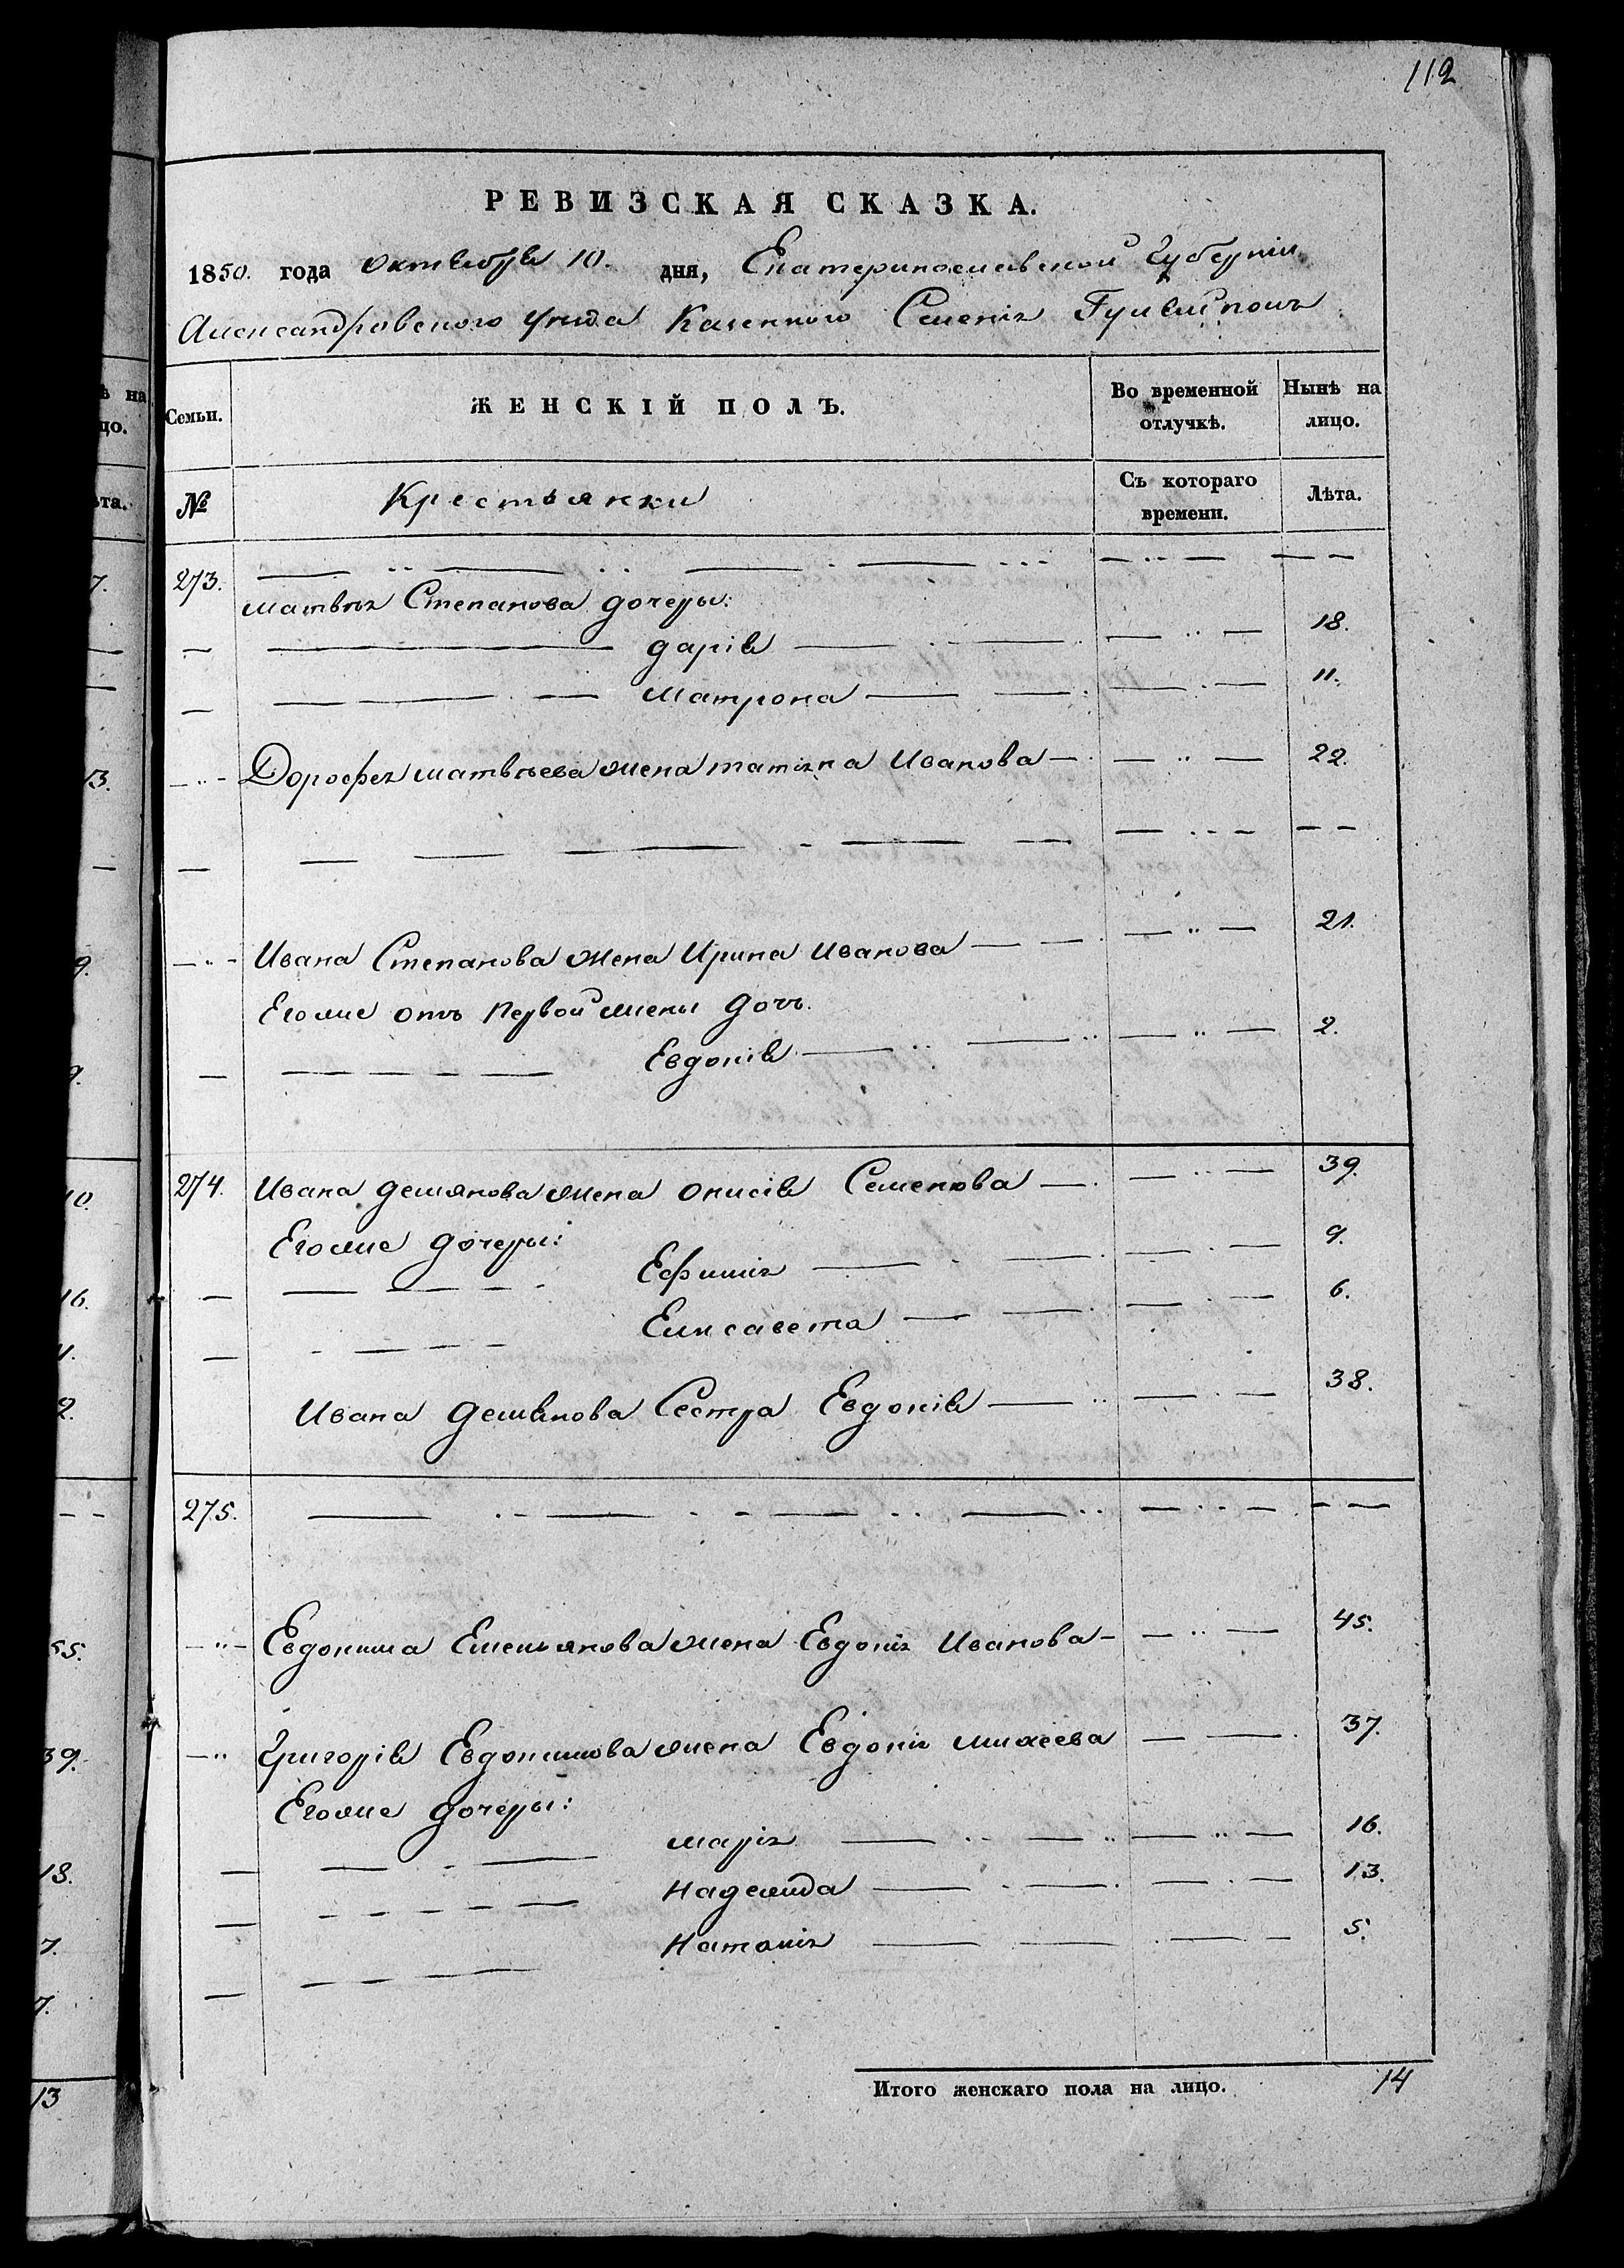 112
РЕВИЗСКАЯ СКАЗКА.
1850. года Октября 10. дня, Екатеринославской Губерніи
Александровского уезда Казенного Селенія Гуляйполь
Семьи. ЖЕНСКІЙ ПОЛЪ. Во временной отлучкѣ. Нынѣ на лицо.
№ Крестьянки Съ котораго времени. Лѣта.
273.
Матвея Степанова дочеры:
Дарія 18.
Матрона 11.
Дорофея Матвѣева жена Татіяна Иванова 22.
Ивана Степанова жена Ирина Иванова 21.
Егоже отъ Первой жены дочь.
Евдокія 2.
274. Ивана Демянова жена Онисія Семенова 39.
Егоже дочеры:
Ефимія 9.
Елисавета 6.
Ивана Демянова Сестра Евдокія 38.
275.
Евдокима Емельянова жена Евдокія Иванова 45.
Григорія Евдокимова жена Евдокія Михеева 37.
Егоже дочеры:
Марія 16.
Надежда 13.
Наталія 5.
Итого женскаго пола на лицо. 14
ѣ на
цо.
ѣта.
7.
13.
9.
9.
10.
16.
1.
2.
55.
39.
18.
7.
7.
13